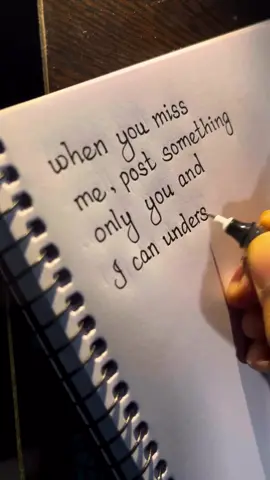 when you miss
me, post something
only you and
I can unders